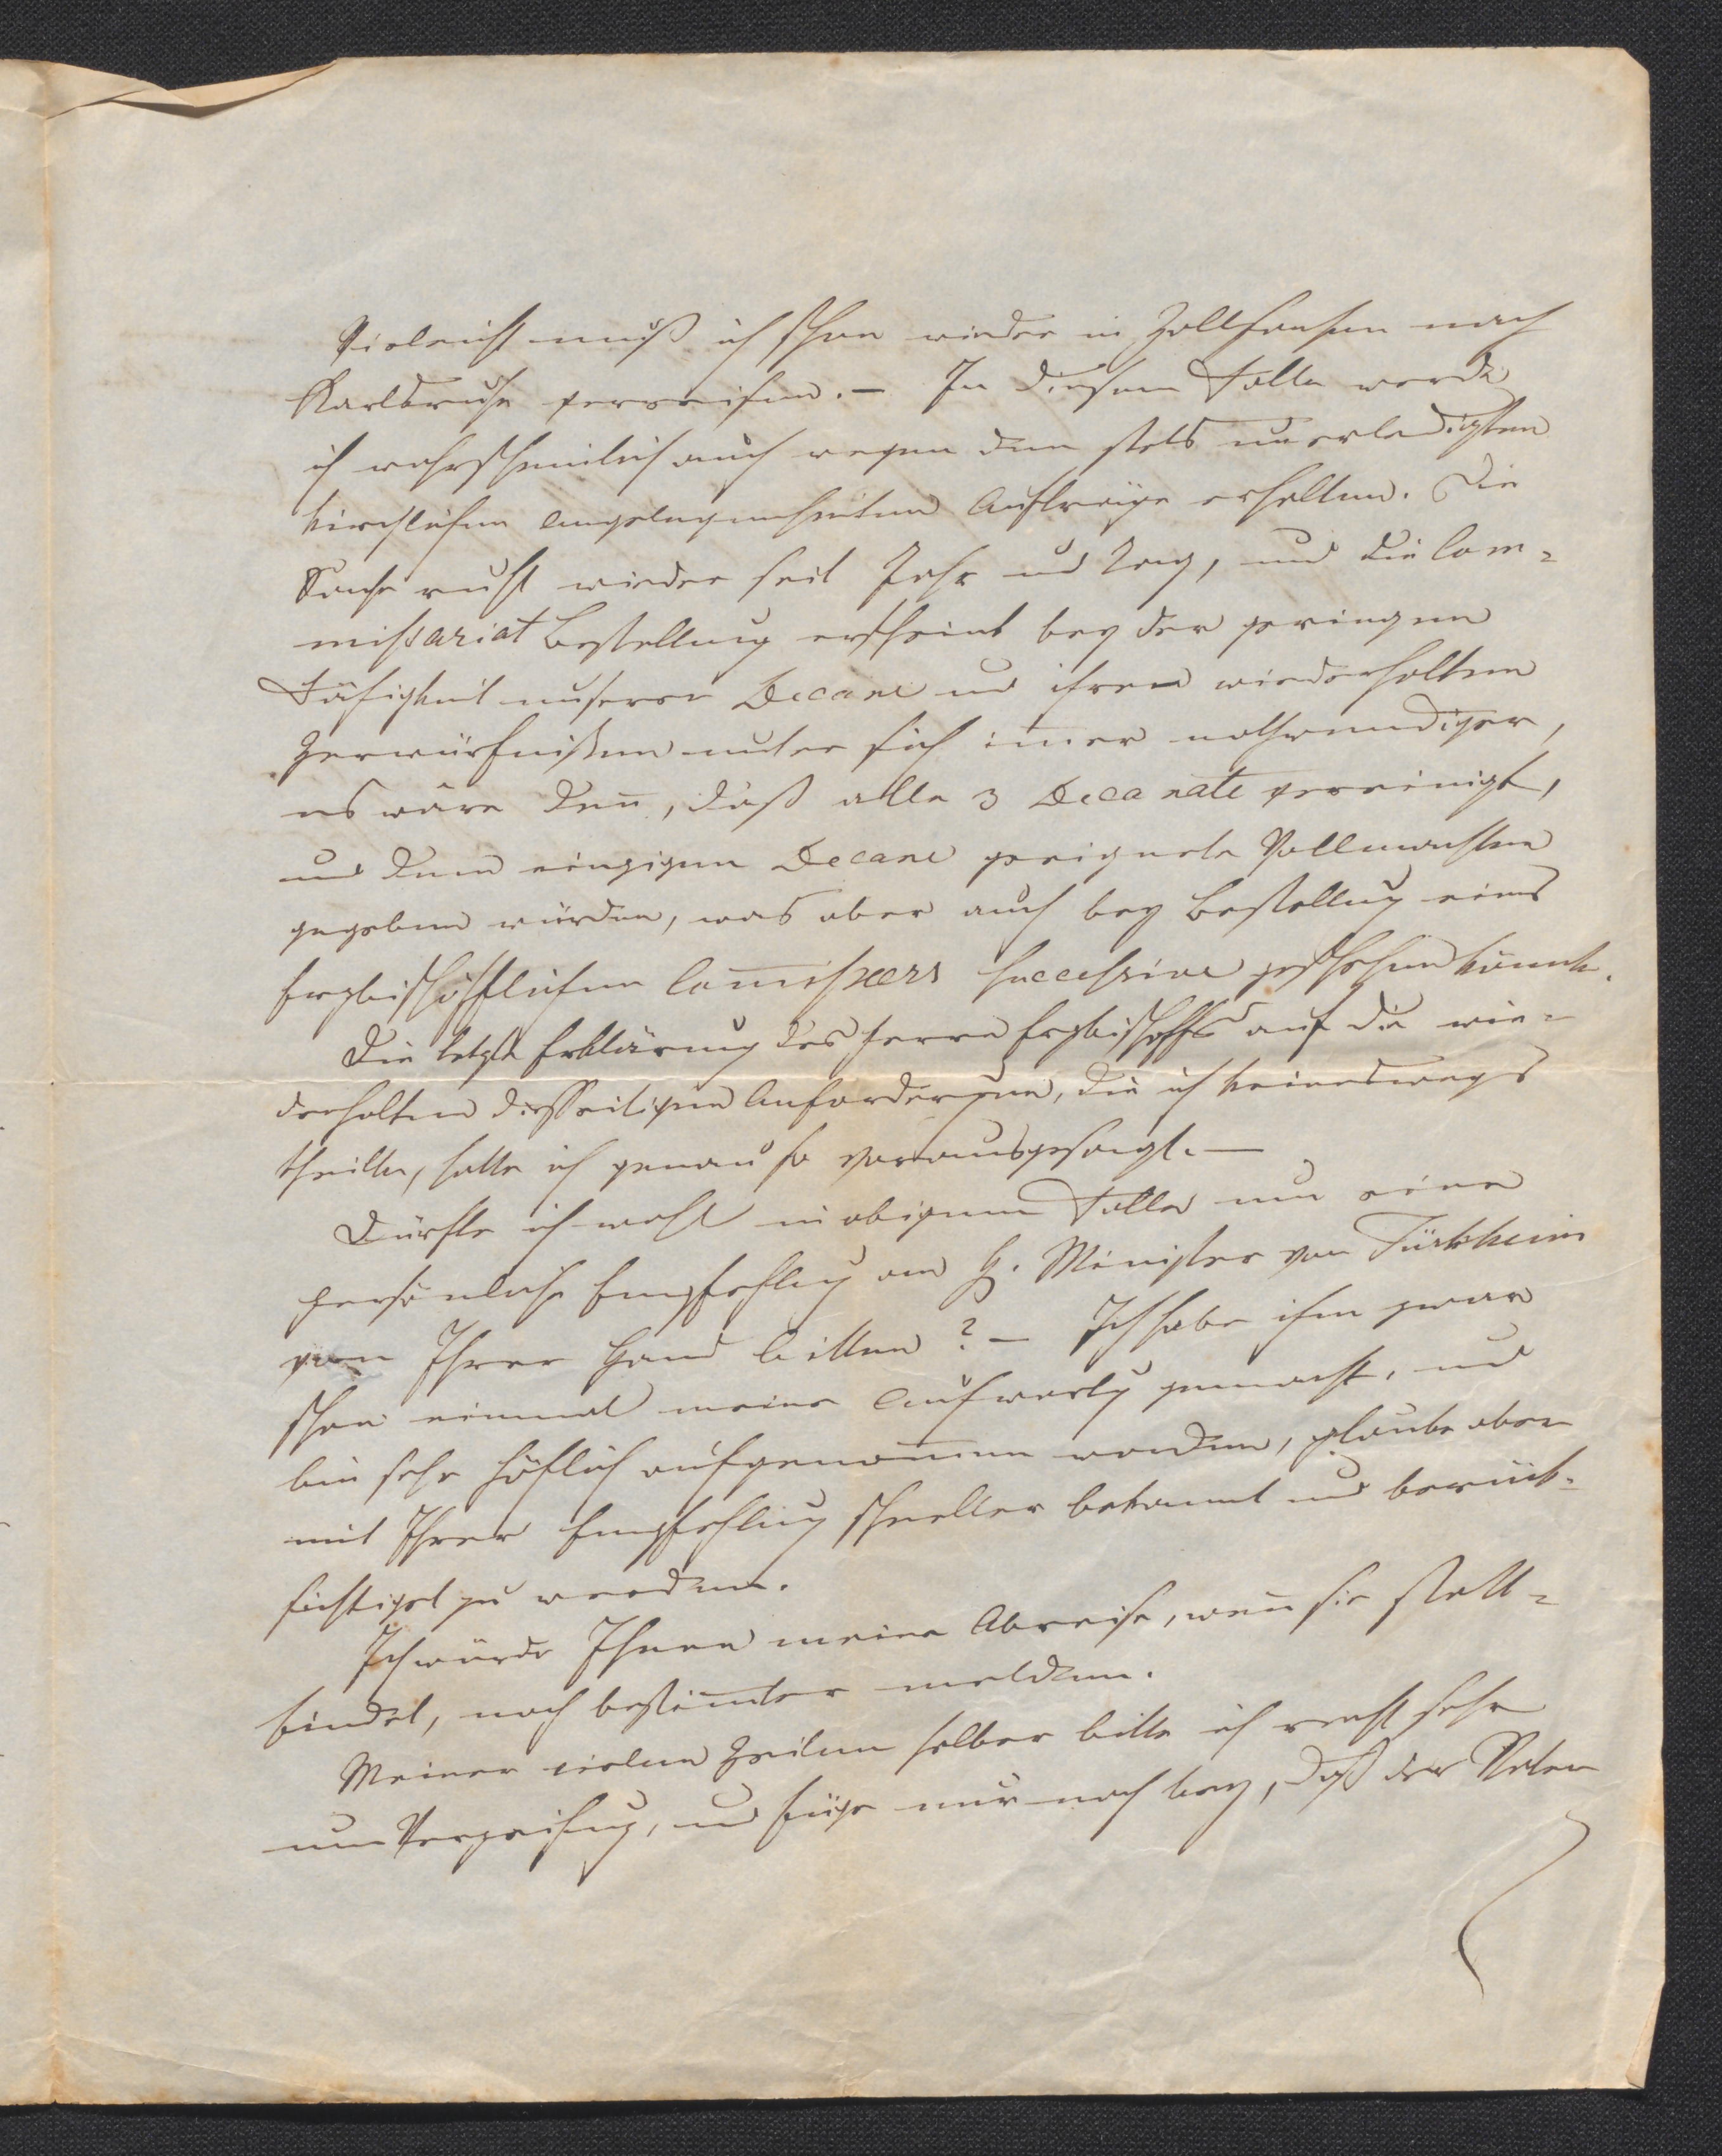 Vieleicht muß ich schon wieder in Zollsachen nach
Karlsruhe verreisen. – In diesem Falle werde
ich wahrscheinlich auch wegen den stets unerledigten
kirchlichen Angelegenheiten Aufträge erhalten. Die
Sache ruht wieder seit Jahr und Tag, und die Com-
missariat Bestellung erscheint bey der geringen
Fähigkeit unserer Decane und ihren wiederholten
Zerwürfnißen unter sich im̄er nothwendiger,
es wäre den̄, daß alle 3 Decanate vereinigt,
und dem einzigen Decane geeignete Vollmachten
gegeben würden, was aber auch bey Bestellung eines
Erzbischöfflichen Com̄issärs successive geschehen könnte.
Die letzte Erklärung des Herrn Erzbischoffs auf die wie-
derholten diesseitigen Anforderungen, die ich keineswegs
theilte, hatte ich genau so vorausgesagt. –
Dürfte ich wohl in obigem Falle um eine
persönliche Empfehlung an H. Minister von Türkheim
von Ihrer Hand bitten? – Ich habe ihm zwar
schon einmal meine Aufwartung gemacht, und
bin sehr höflich aufgenom̄en worden, glaube aber
mit Ihrer Empfehlung schneller bekannt und berück-
sichtiget zu werden.
Ich würde Ihnen meine Abreise, wen̄ sie statt-
findet, noch bestim̄ter melden.
Meiner vielen Zeilen selber bitte ich recht sehr
um Verzeihung, und füge nur noch bey, daß der